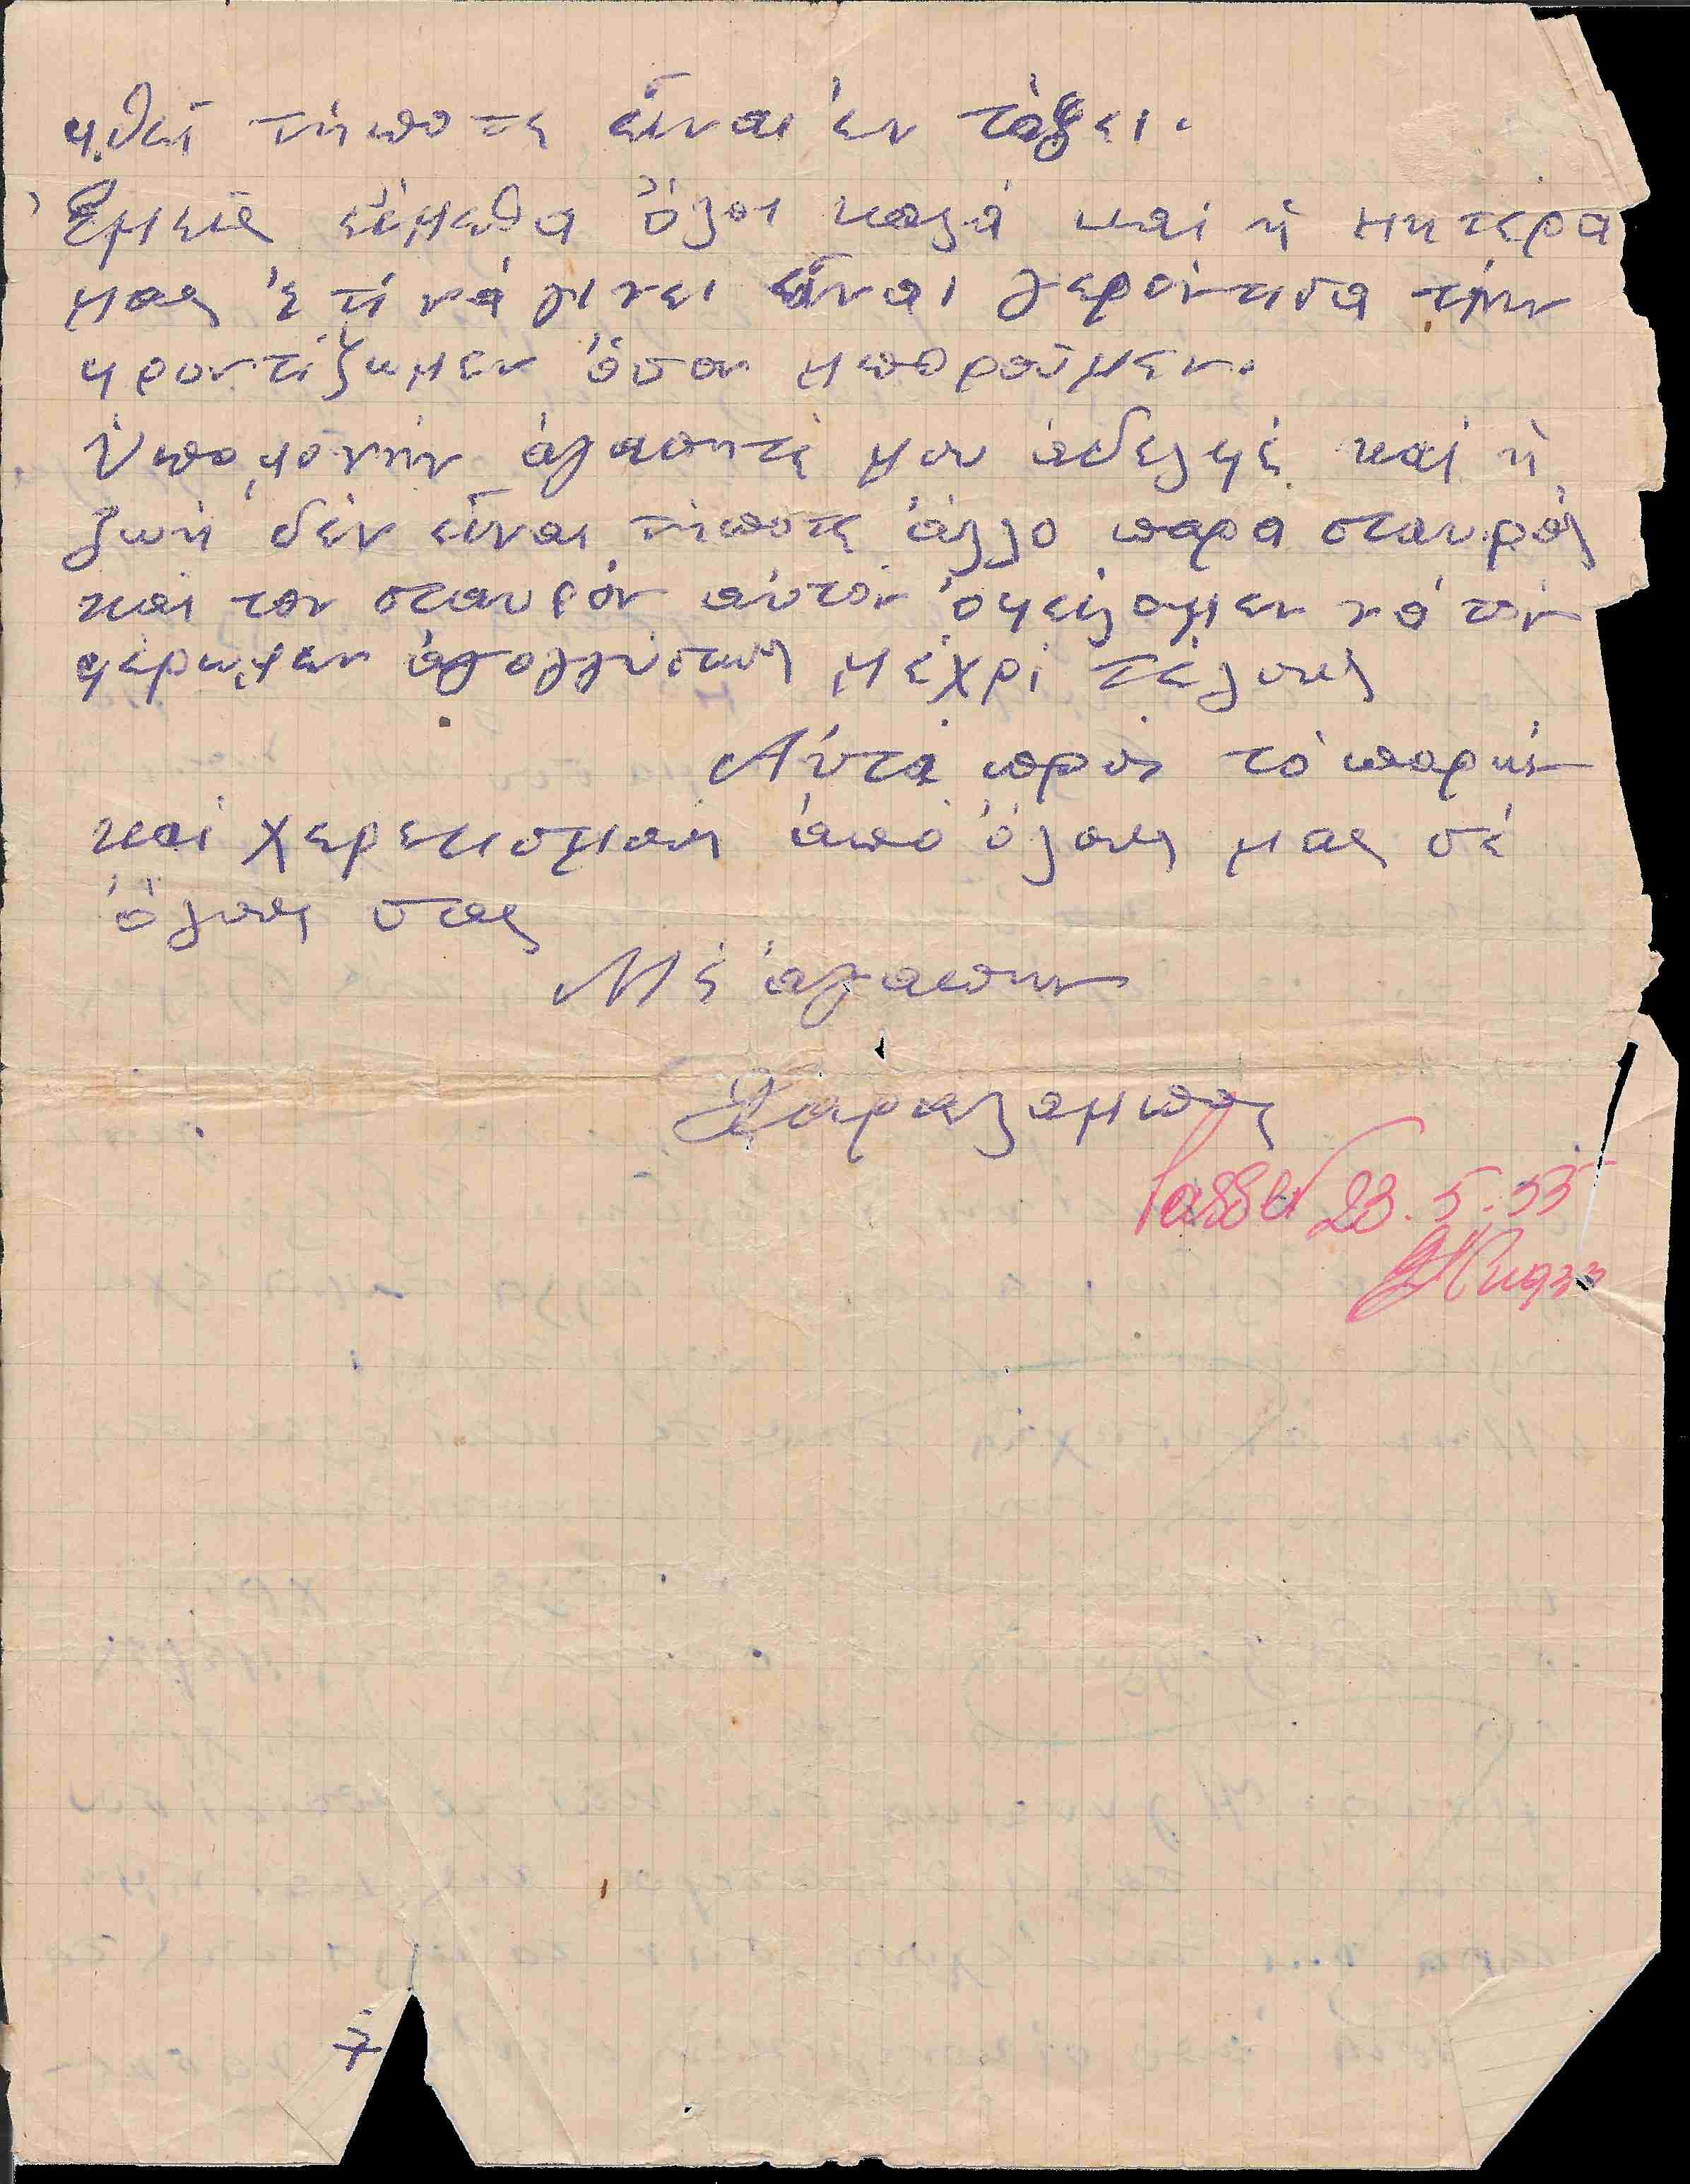 φθεί τήποτε εἶναι ἐν τάξει.
Ἐμεῖς εἴμεθα ὅλοι καλά καί ἡ μητέρα
μας ἔ τί νά γίνει εἶναι γερόντισα τήν
φροντίζωμεν ὅσον μποροῦμεν.
Ὑπομονήν ἀγαπητέ μου ἀδελφέ καί ἡ
ζωή δέν εἶναι τήποτε ἄλλο παρά σταυρός
καί τον σταυρόν αὐτόν ὀφείλομεν νά τόν
φέρωμεν ἀγογγύστως μέχρι τέλους
Αὐτά πρός τό παρόν
καί χερετισμούς ἀπό ὅλους μας σέ
ὅλους σας
Μέ ἀγαπην
Χαραλαμπος
Passed 23.5.55
7